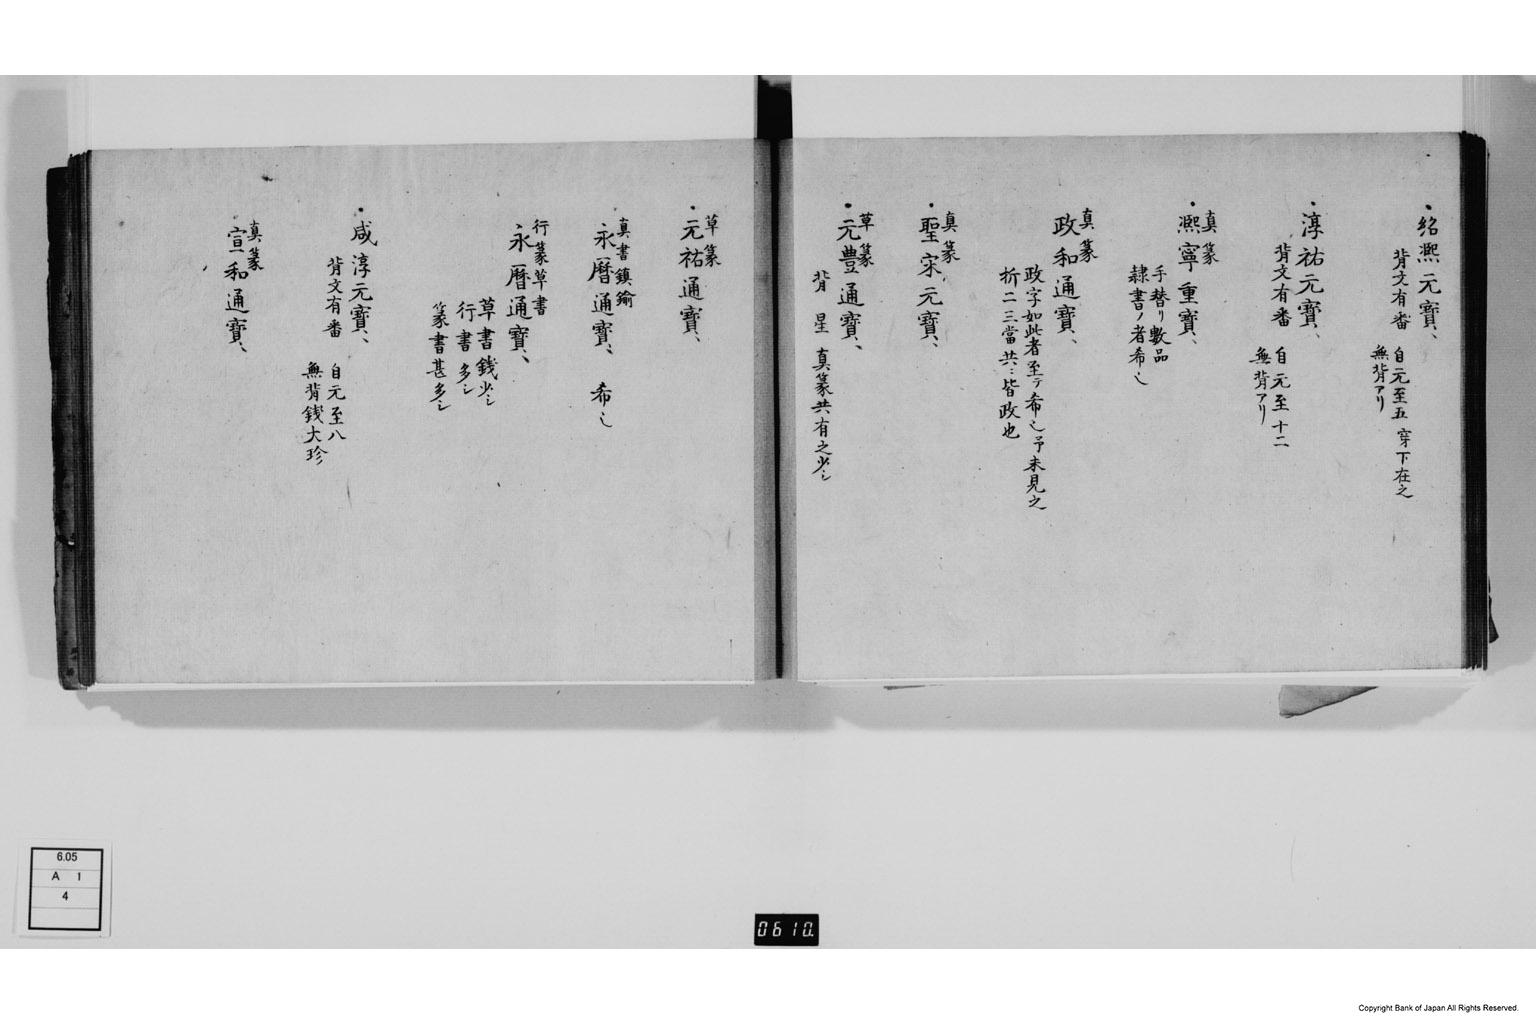 紹熙元寳、
背文有番　自元至五　穿下在之
無背アリ
淳祐元寳、
背文有番　自元至十二
無背アリ
真篆
熙寧重寳、
手替リ數品
隷書ノ者希也
真篆
政和通寳、
政字如此者至テ希也予未見之
折二三當共ニ皆政也
真篆
聖宋元寳、
草篆
元豊通寳、
背星　真篆共有之少シ
草篆
元祐通寳、
真書鎮鍮
永曆通寳、　希也
行篆草書
永曆通寳、
草書銭少シ
行書多シ
篆書甚多シ
咸淳元寳、
背文有番　自元至八
無背銭大珍
真篆
宣和通寳、
6.05
A 1
4
0610.
Copyright Bank of Japan All Rights Reserved.